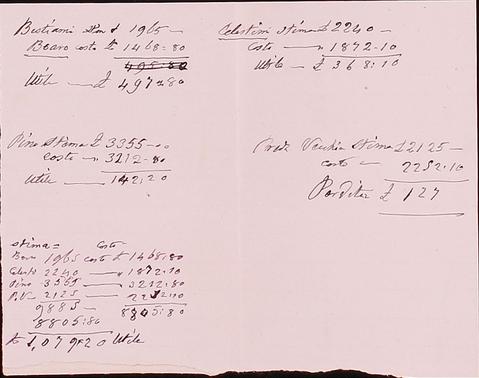 Bestiami Stima £ 1965 —
Bovaro costo £ 1468:80
495:80
Utile — £ 497:80
Celestini Stima £ 2240 —
Costo — " 1872-10
Utile — £ 368:10
Pino Stima £ 3355 —
Costo — " 3212-80
Utile — 142:20
Vecchia Stima £ 2125 —
costo — 2252.10
Perdita £ 127
Stima = Costo
Bova 1965 costo £ 1468:80
Celesti 2240 — " 1872.10
Pino 3355 — " 3212:80
P.V. 2125 — 2252:10
9885 — 8805:80
8805:80
£ 1,079:20 Utile